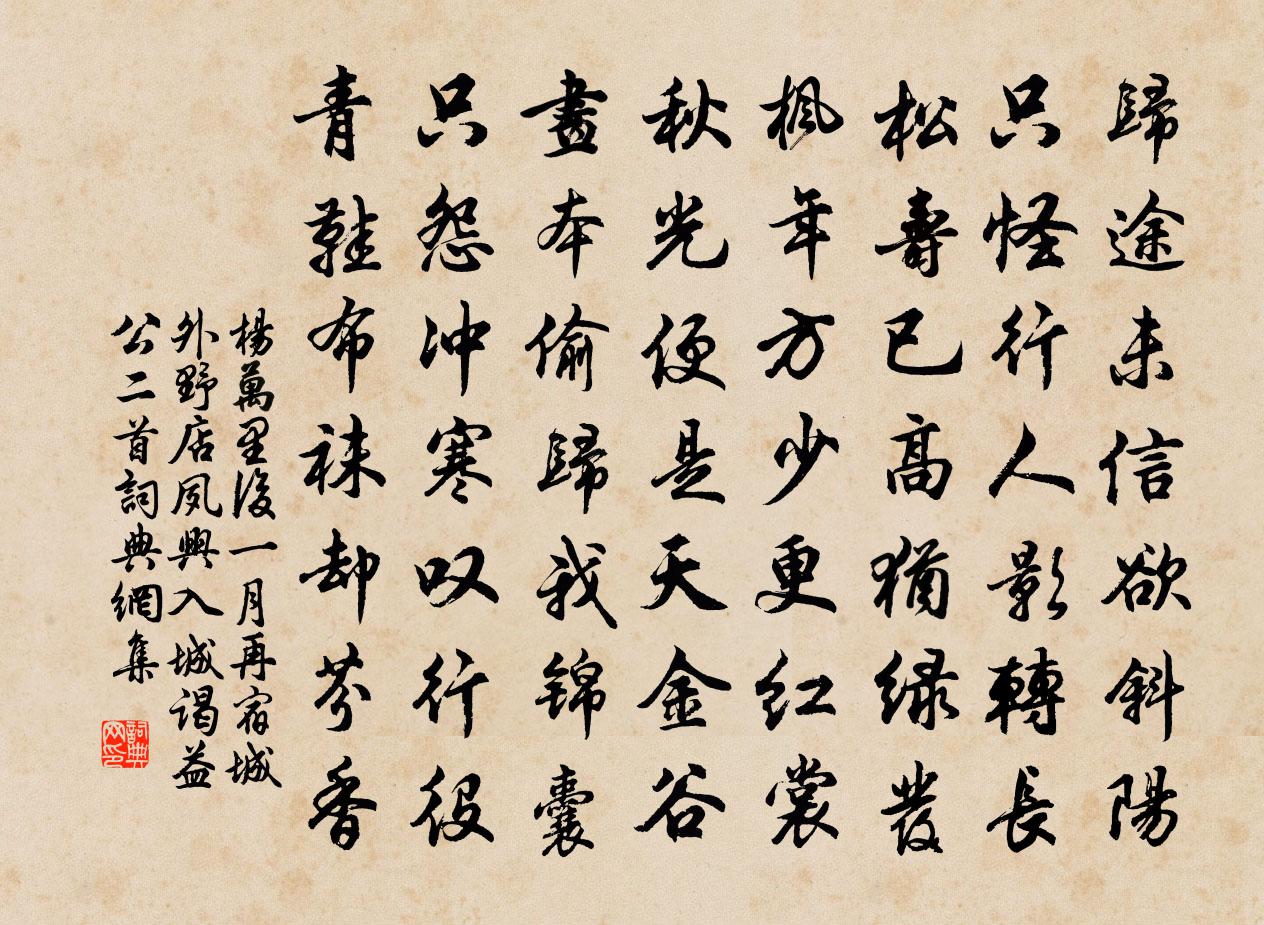 歸途未信欲斜陽
只怪行人影轉長
松壽已高猶绿發
楓年方少更红裳
秋光便是天金谷
畫本偷歸我锦囊
只怨冲寒叹行役
青鞋布袜却芬香
楊萬里後一月再宿城
外野店夙興入城谒益
公二首詞典網集
詞典
网印